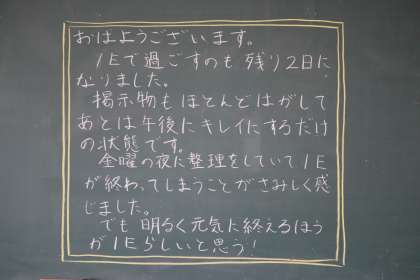 おはようございます。
1Eで過ごすのも残り2日に
なりました。
掲示物もほとんどはがして
あとは午後にキレイにするだけ
の状態です。
金曜の夜に整理をしていて1E
が終わってしまうことがさみしく感
じました。
でも明るく元気に終えるほう
が1Eらしいと思う!